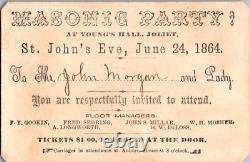 MASONIC PARTY!
AT YOUNG'S HALL, JOLIET,
St. John's Eve, June 24, 1864.
To Mr John Morgan and Lady.
You are respectfully invited to attend.
FLOOR MANAGERS.
F. Y. GOOKIN, FRED. SEHRING, JOHN S. MILLAR, W. H.
A. LONGWORTH, W. DeLOSS,
TICKETS $1 00, AT THE DOOR,
Carriages in attendance at